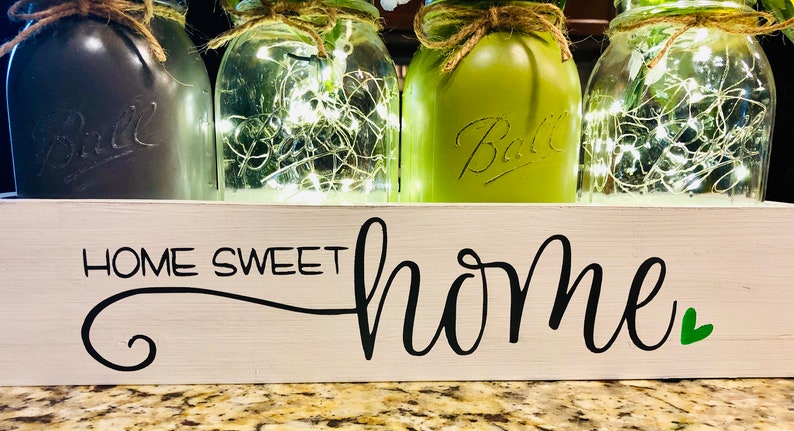 Ball
Ball
HOME SWEET home